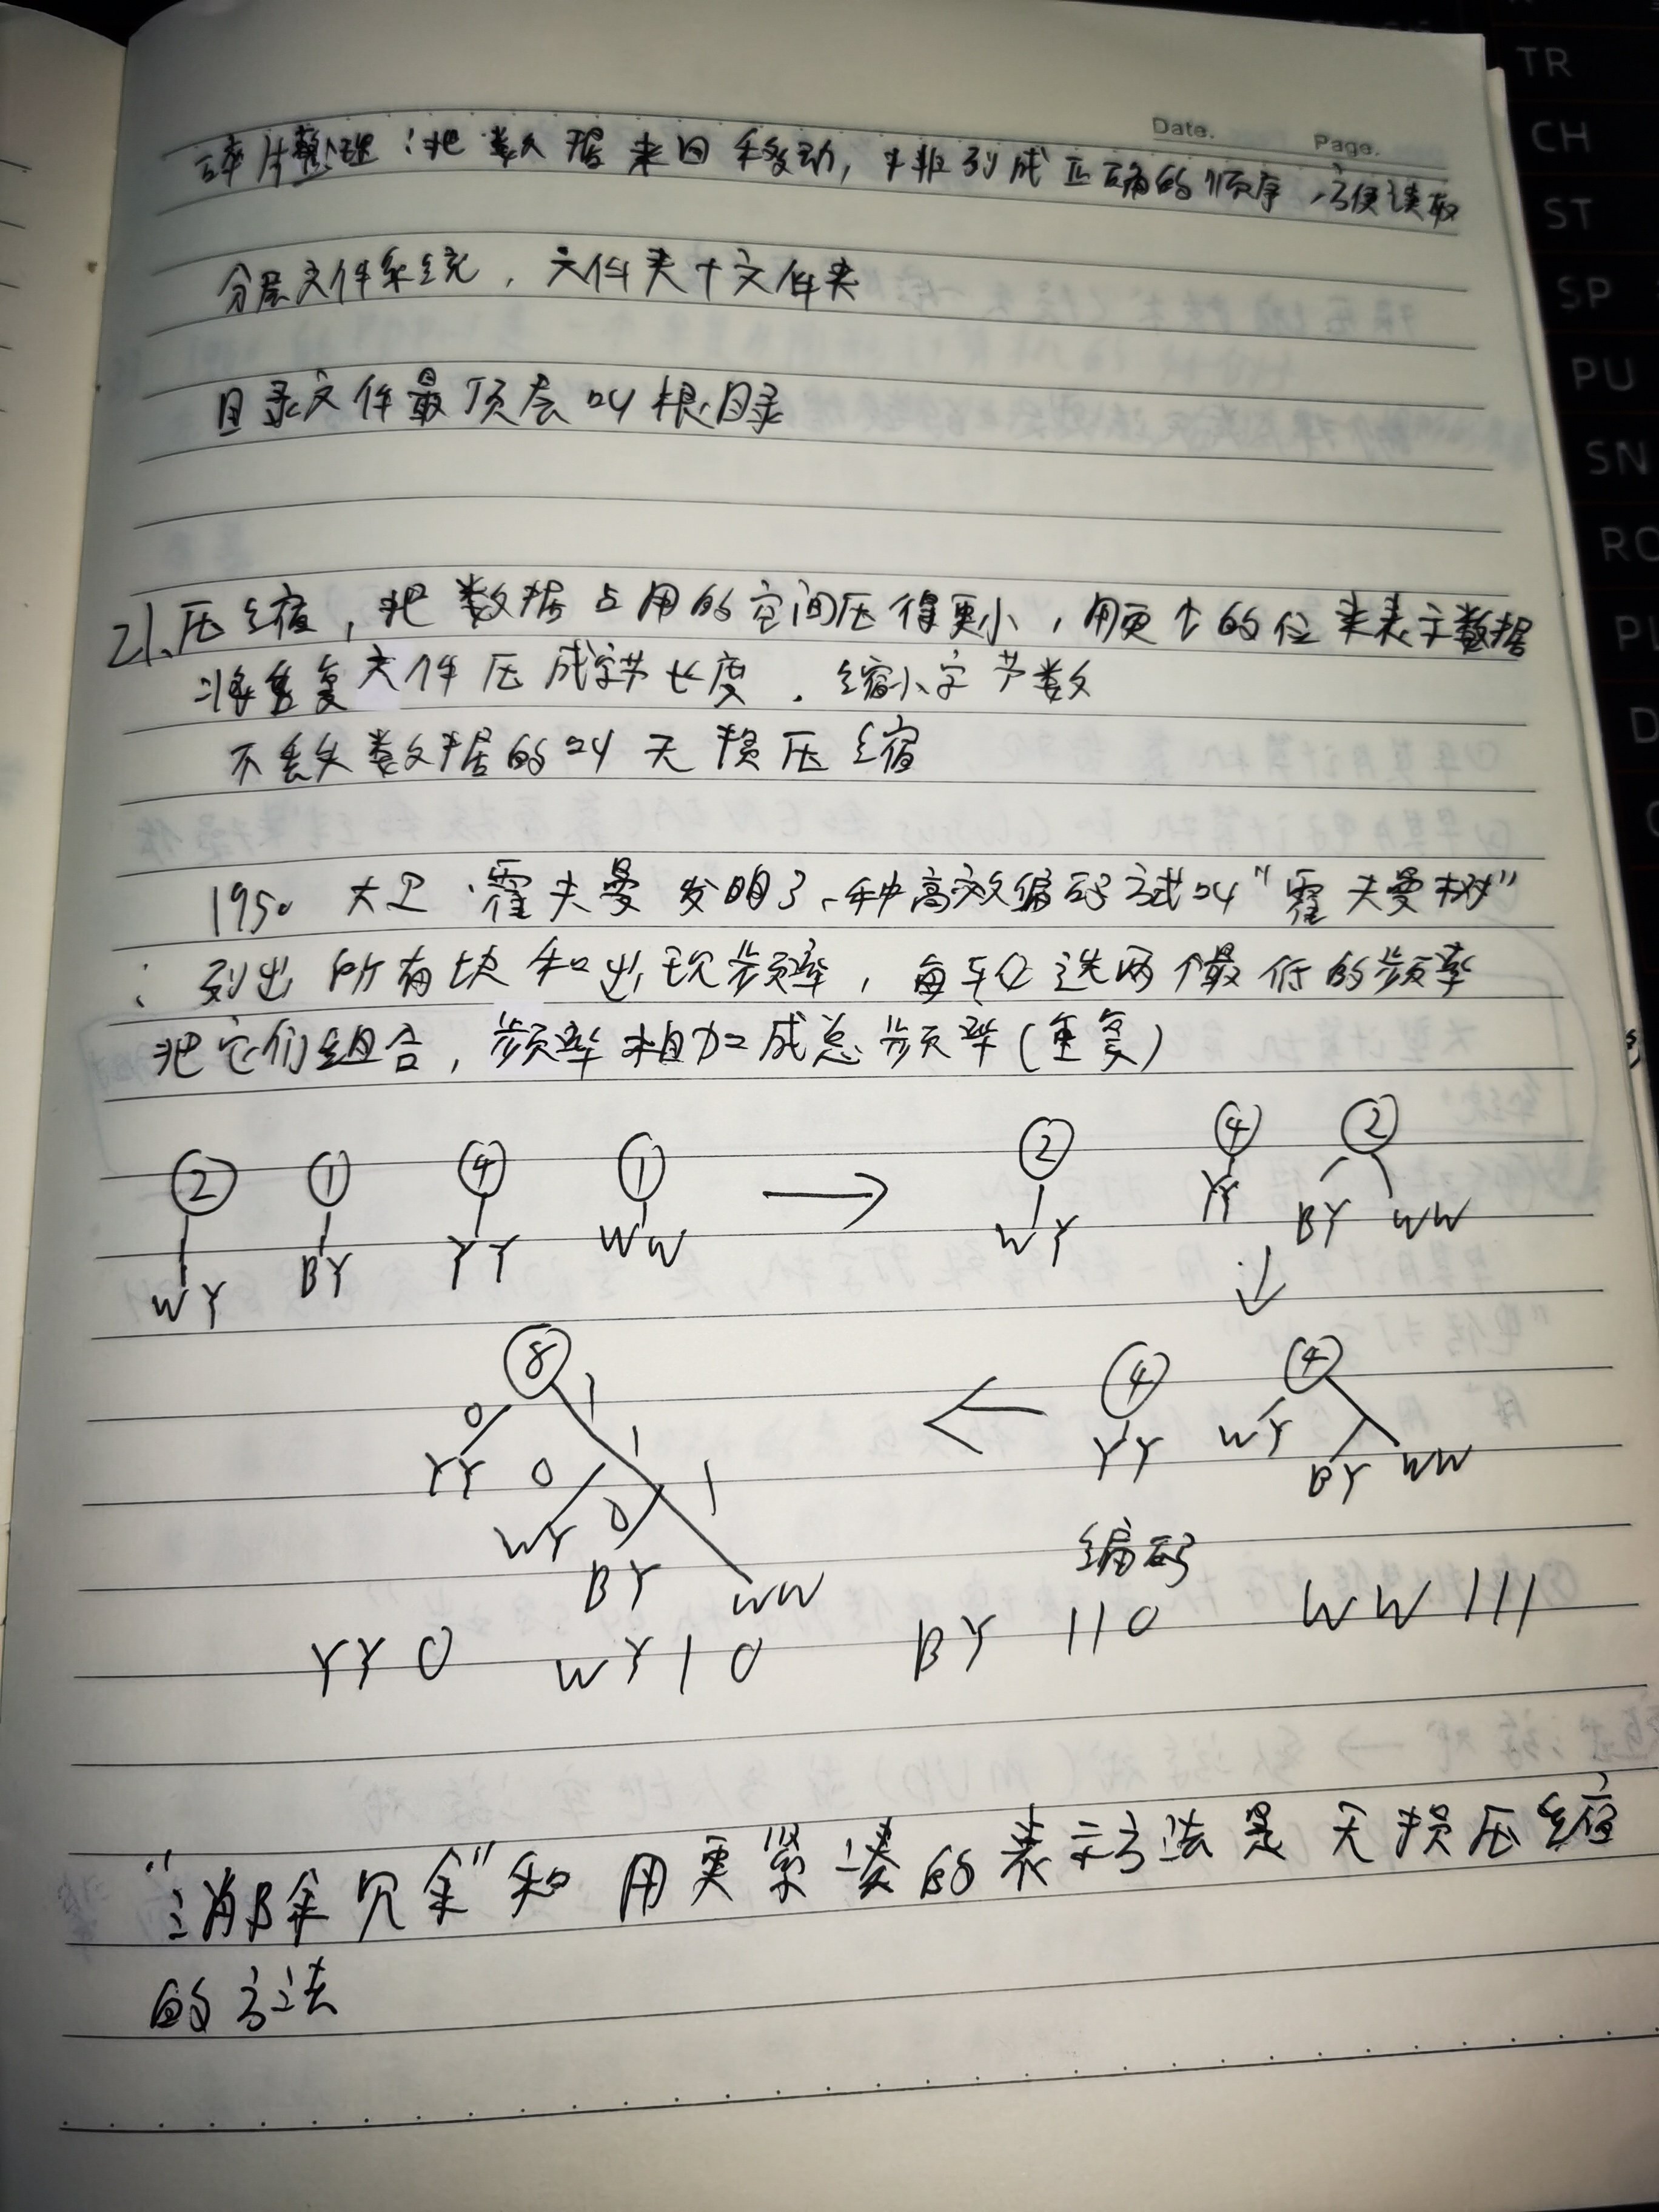 Date. Page.
碎片整理：把数据来回移动，排列成正确的顺序，方便读取
分层文件系统，文件夹+文件夹
目录文件最顶层叫根目录
21、压缩，把数据占用的空间压得更小，用更少的位来表示数据
将重复文件压成字节长度，缩小字节数
不丢失数据的叫无损压缩
1950 大卫·霍夫曼发明了一种高效编码方式叫"霍夫曼树"
：列出所有块和出现频率，每轮选两个最低的频率
把它们组合，频率相加成总频率(重复)
② ① ④ ① → ② ④ ②
WY BY YY WW WY YY BY WW
↓
⑧ ← ④ ④
0 1
YY 0 1 YY WY
WY 0 1 BY WW
BY WW
编码
YY 0 WY 10 BY 110 WW 111
"消除冗余"和用更紧凑的表示方法是无损压缩
的方法
TR
CH
ST
SP
PU
SN